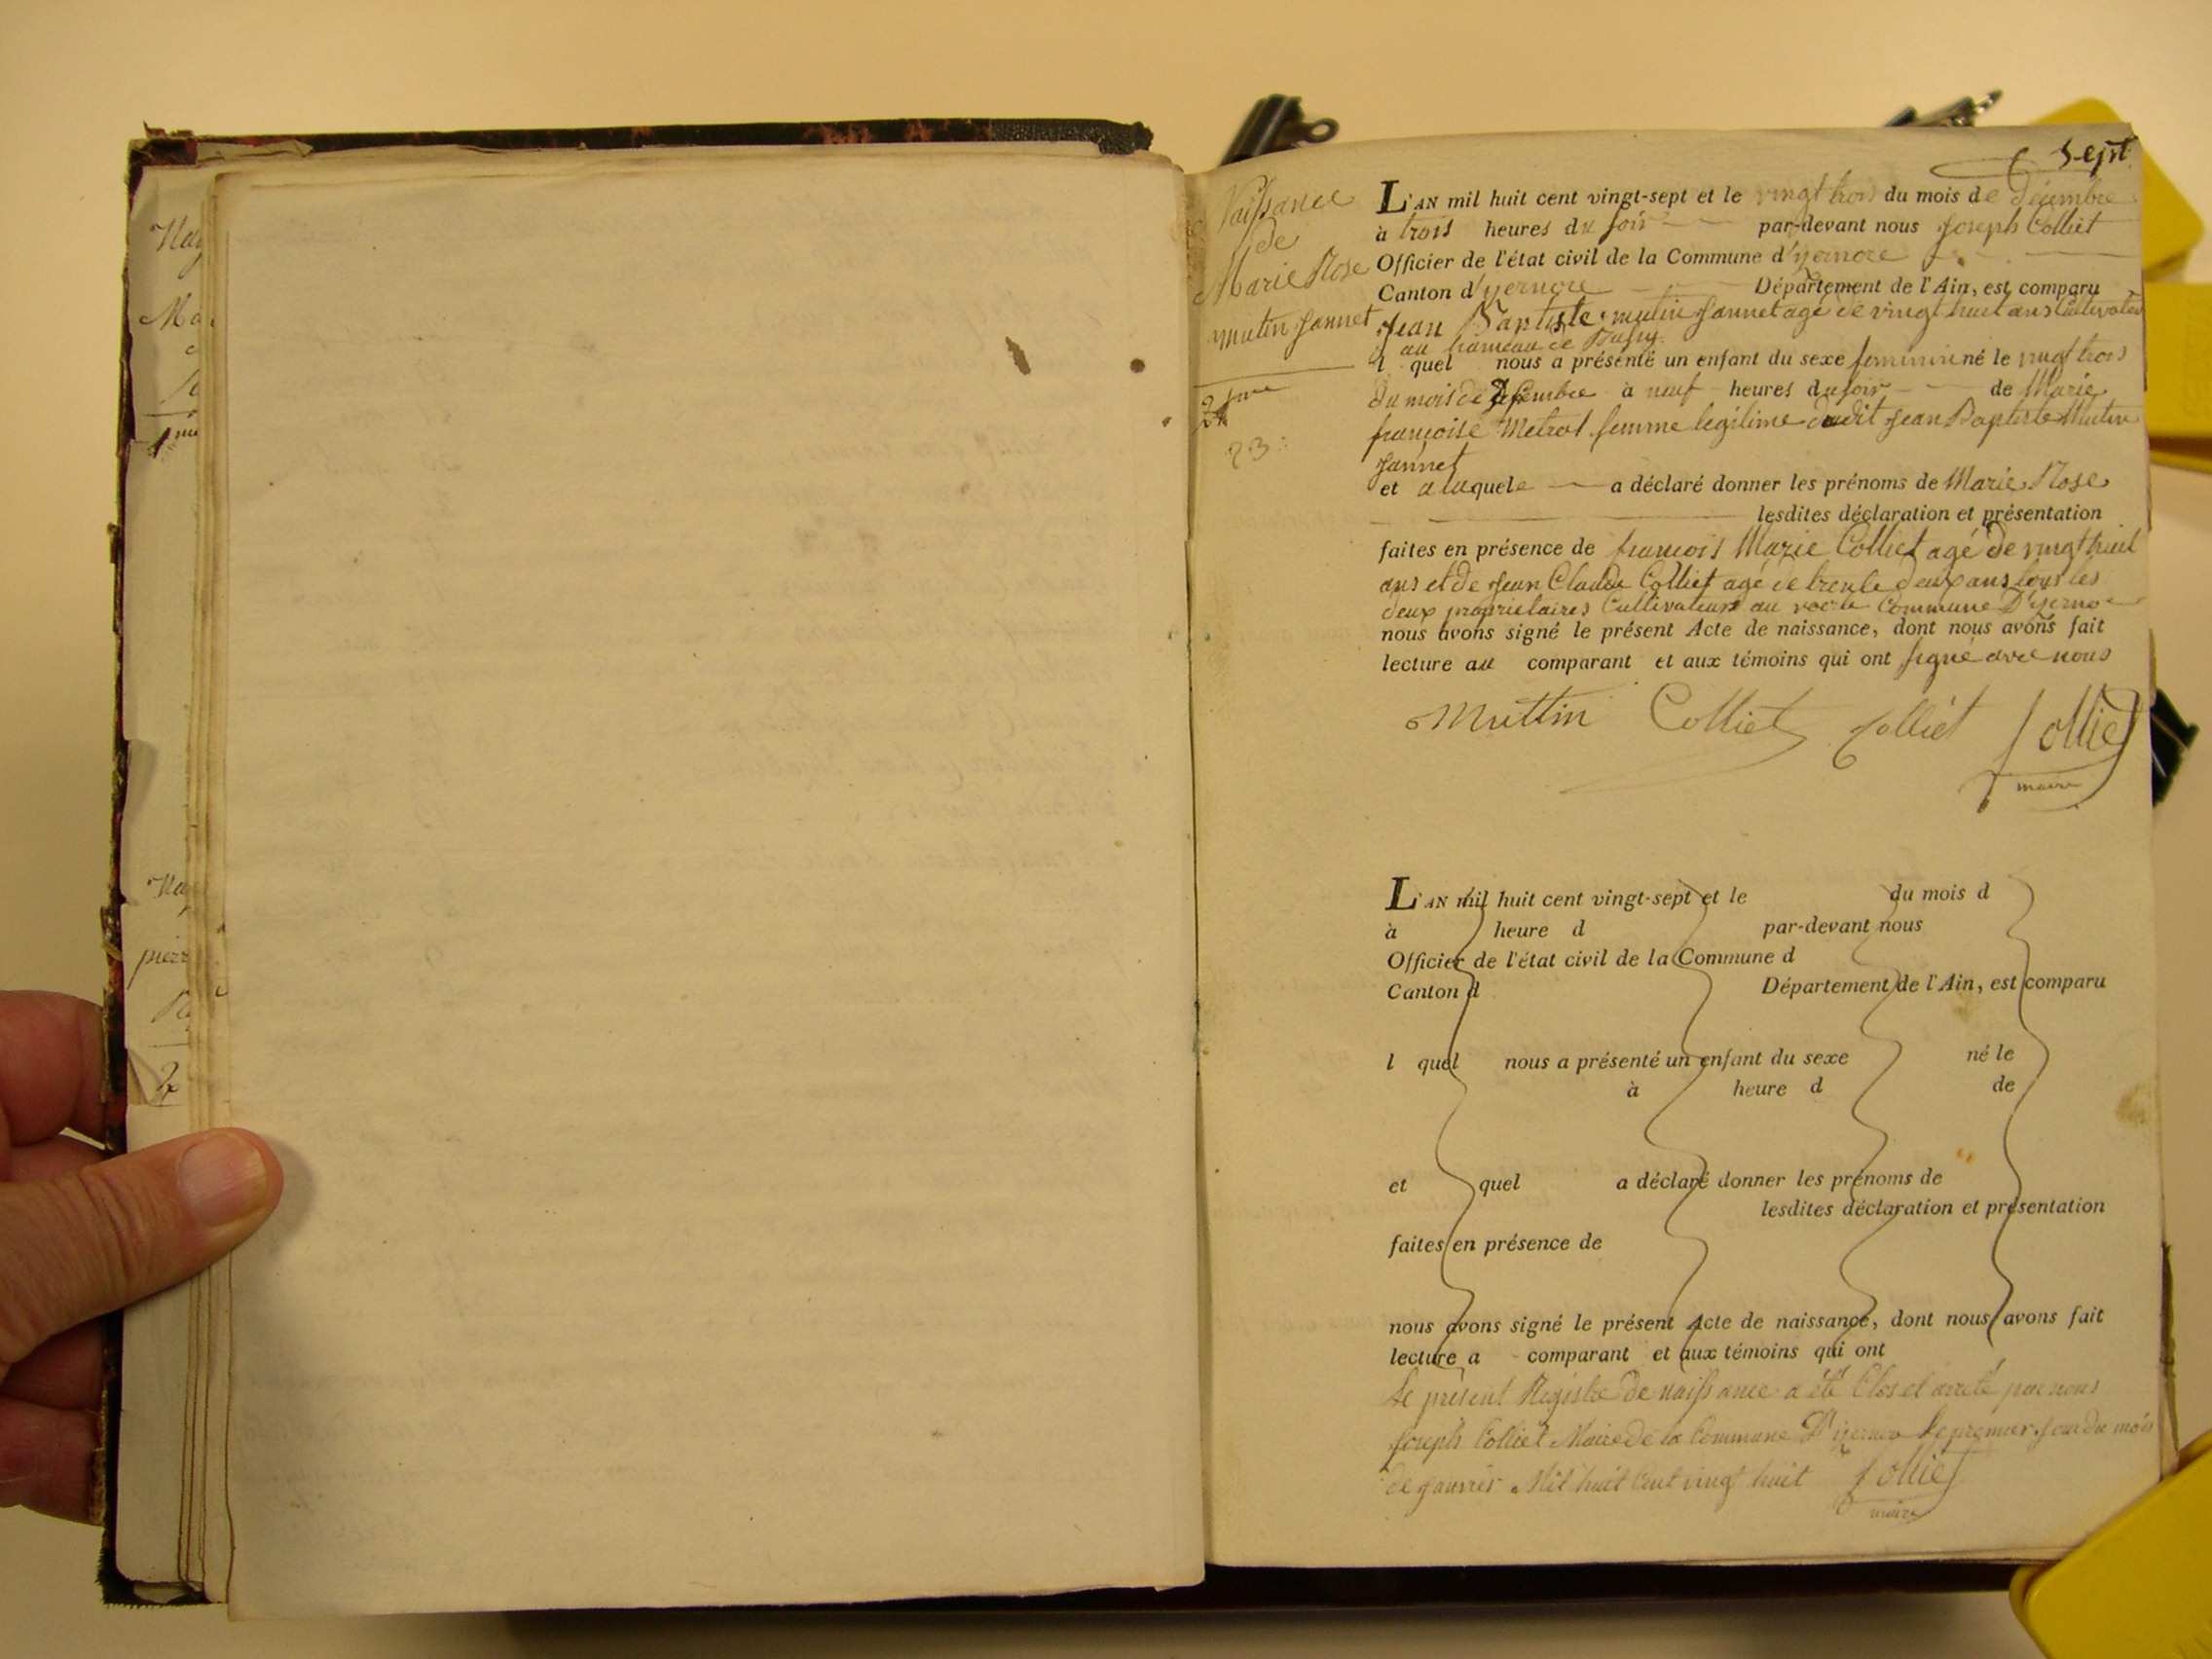 Nay
Ma
1
Na
pierr
2
sept
Naissance
de
Marie Rose
mutin Jannet
23
L'AN mil huit cent vingt-sept et le vingt trois du mois de Décembre
à trois heures du soir par-devant nous Joseph Colliet
Officier de l'état civil de la Commune d'yzernore
Canton d'yzernore Département de l'Ain, est comparu
Jean Baptiste mutin Jannet agé de vingt huit ans Cultivateur
au hameau de Bussy
l quel nous a présenté un enfant du sexe feminin né le vingt trois
du mois de Décembre à neuf heures du soir de Marie
françoise Metral femme legitime dudit Jean Baptiste Mutin
Jannet
et a laquele a déclaré donner les prénoms de Marie Rose
lesdites déclaration et présentation
faites en présence de francois Marie Colliet agé de vingt huit
ans et de Jean Claude Colliet agé de trente deux ans tous les
deux proprietaires Cultivateurs au Commune D'yzernore
nous avons signé le présent Acte de naissance, dont nous avons fait
lecture au comparant et aux témoins qui ont signé avec nous
Muttin Colliet Colliet Colliet
maire
L'AN mil huit cent vingt-sept et le du mois d
à heure d par-devant nous
Officier de l'état civil de la Commune d
Canton d Département de l'Ain, est comparu
l quel nous a présenté un enfant du sexe né le
à heure d de
et quel a déclaré donner les prénoms de
lesdites déclaration et présentation
faites en présence de
nous avons signé le présent Acte de naissance, dont nous avons fait
lecture a comparant et aux témoins qui ont
Le présent Registre de naissance a été Clos et arreté par nous
Joseph Colliet Maire de la Commune D'yzernore le premier jour du mois
de janvier Mil huit Cent vingt huit Colliet
maire